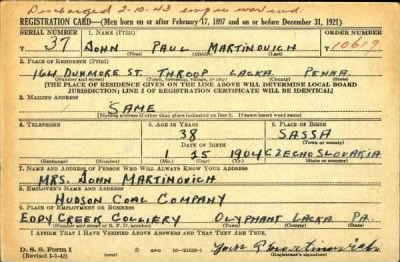 Discharged 2-10-43
REGISTRATION CARD—(Men born on or after February 17, 1897 and on or before December 31, 1921)
SERIAL NUMBER 1. NAME (Print) ORDER NUMBER
T 37 JOHN PAUL MARTINOVICH 10619
(First) (Middle) (Last)
2. PLACE OF RESIDENCE (Print)
164 DUNMORE ST. THROOP LACKA PENNA.
(Number and street) (Town, township, village, or city) (County) (State)
[THE PLACE OF RESIDENCE GIVEN ON THE LINE ABOVE WILL DETERMINE LOCAL BOARD
JURISDICTION; LINE 2 OF REGISTRATION CERTIFICATE WILL BE IDENTICAL]
3. MAILING ADDRESS
SAME
[Mailing address if other than place indicated on line 2. If same insert word same]
4. TELEPHONE 5. AGE IN YEARS 6. PLACE OF BIRTH
38 SASSA
DATE OF BIRTH (Town or county)
1 15 1904 CZECHOSLOVAKIA
(Exchange) (Number) (Mo.) (Day) (Yr.) (State or country)
7. NAME AND ADDRESS OF PERSON WHO WILL ALWAYS KNOW YOUR ADDRESS
MRS. JOHN MARTINOVICH
8. EMPLOYER'S NAME AND ADDRESS
HUDSON COAL COMPANY
9. PLACE OF EMPLOYMENT OR BUSINESS
EDDY CREEK COLLIERY OLYPHANT LACKA PA.
(Number and street or R. F. D. number) (Town) (County) (State)
I AFFIRM THAT I HAVE VERIFIED ABOVE ANSWERS AND THAT THEY ARE TRUE.
D. S. S. Form 1
(Revised 1-1-42) John P Martinovich